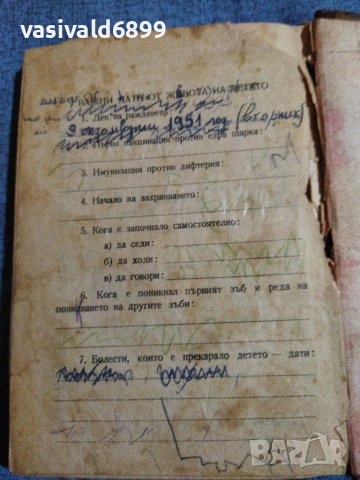 vasivald6869
ВАЖНИ ДАТИ ОТ ЖИВОТА НА ДЕТЕТО
1. Ден на раждането
9 октомври 1951 год (вторник)
2. Първа ваксинация против едра шарка:
3. Имунизация против дифтерия:
4. Начало на захранването:
5. Кога е започнало самостоятелно:
а) да седи:
б) да ходи:
в) да говори:
6. Кога е поникнал първият зъб и реда на
поникването на другите зъби:
7. Болести, които е прекарало детето — дати:
BAZAR